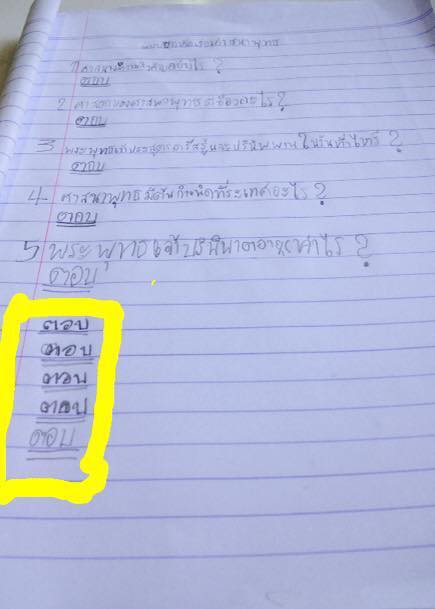 1 ศาสนา
ตอบ
2 ศาสดาของศาสนาพุทธชื่ออะไร?
ตอบ
3 พระพุทธเจ้าประสูตรตรัสรู้และปรินิพพานในวันที่เท่าไหร่ ?
ตอบ
4 ศาสนาพุทธมีต้นกำเนิดที่ประเทศอะไร ?
ตอบ
5 พระพุทธเจ้าปรินิพาตอายุเท่าไร ?
ตอบ
ตอบ
ตอบ
ตอบ
ตอบ
ตอบ